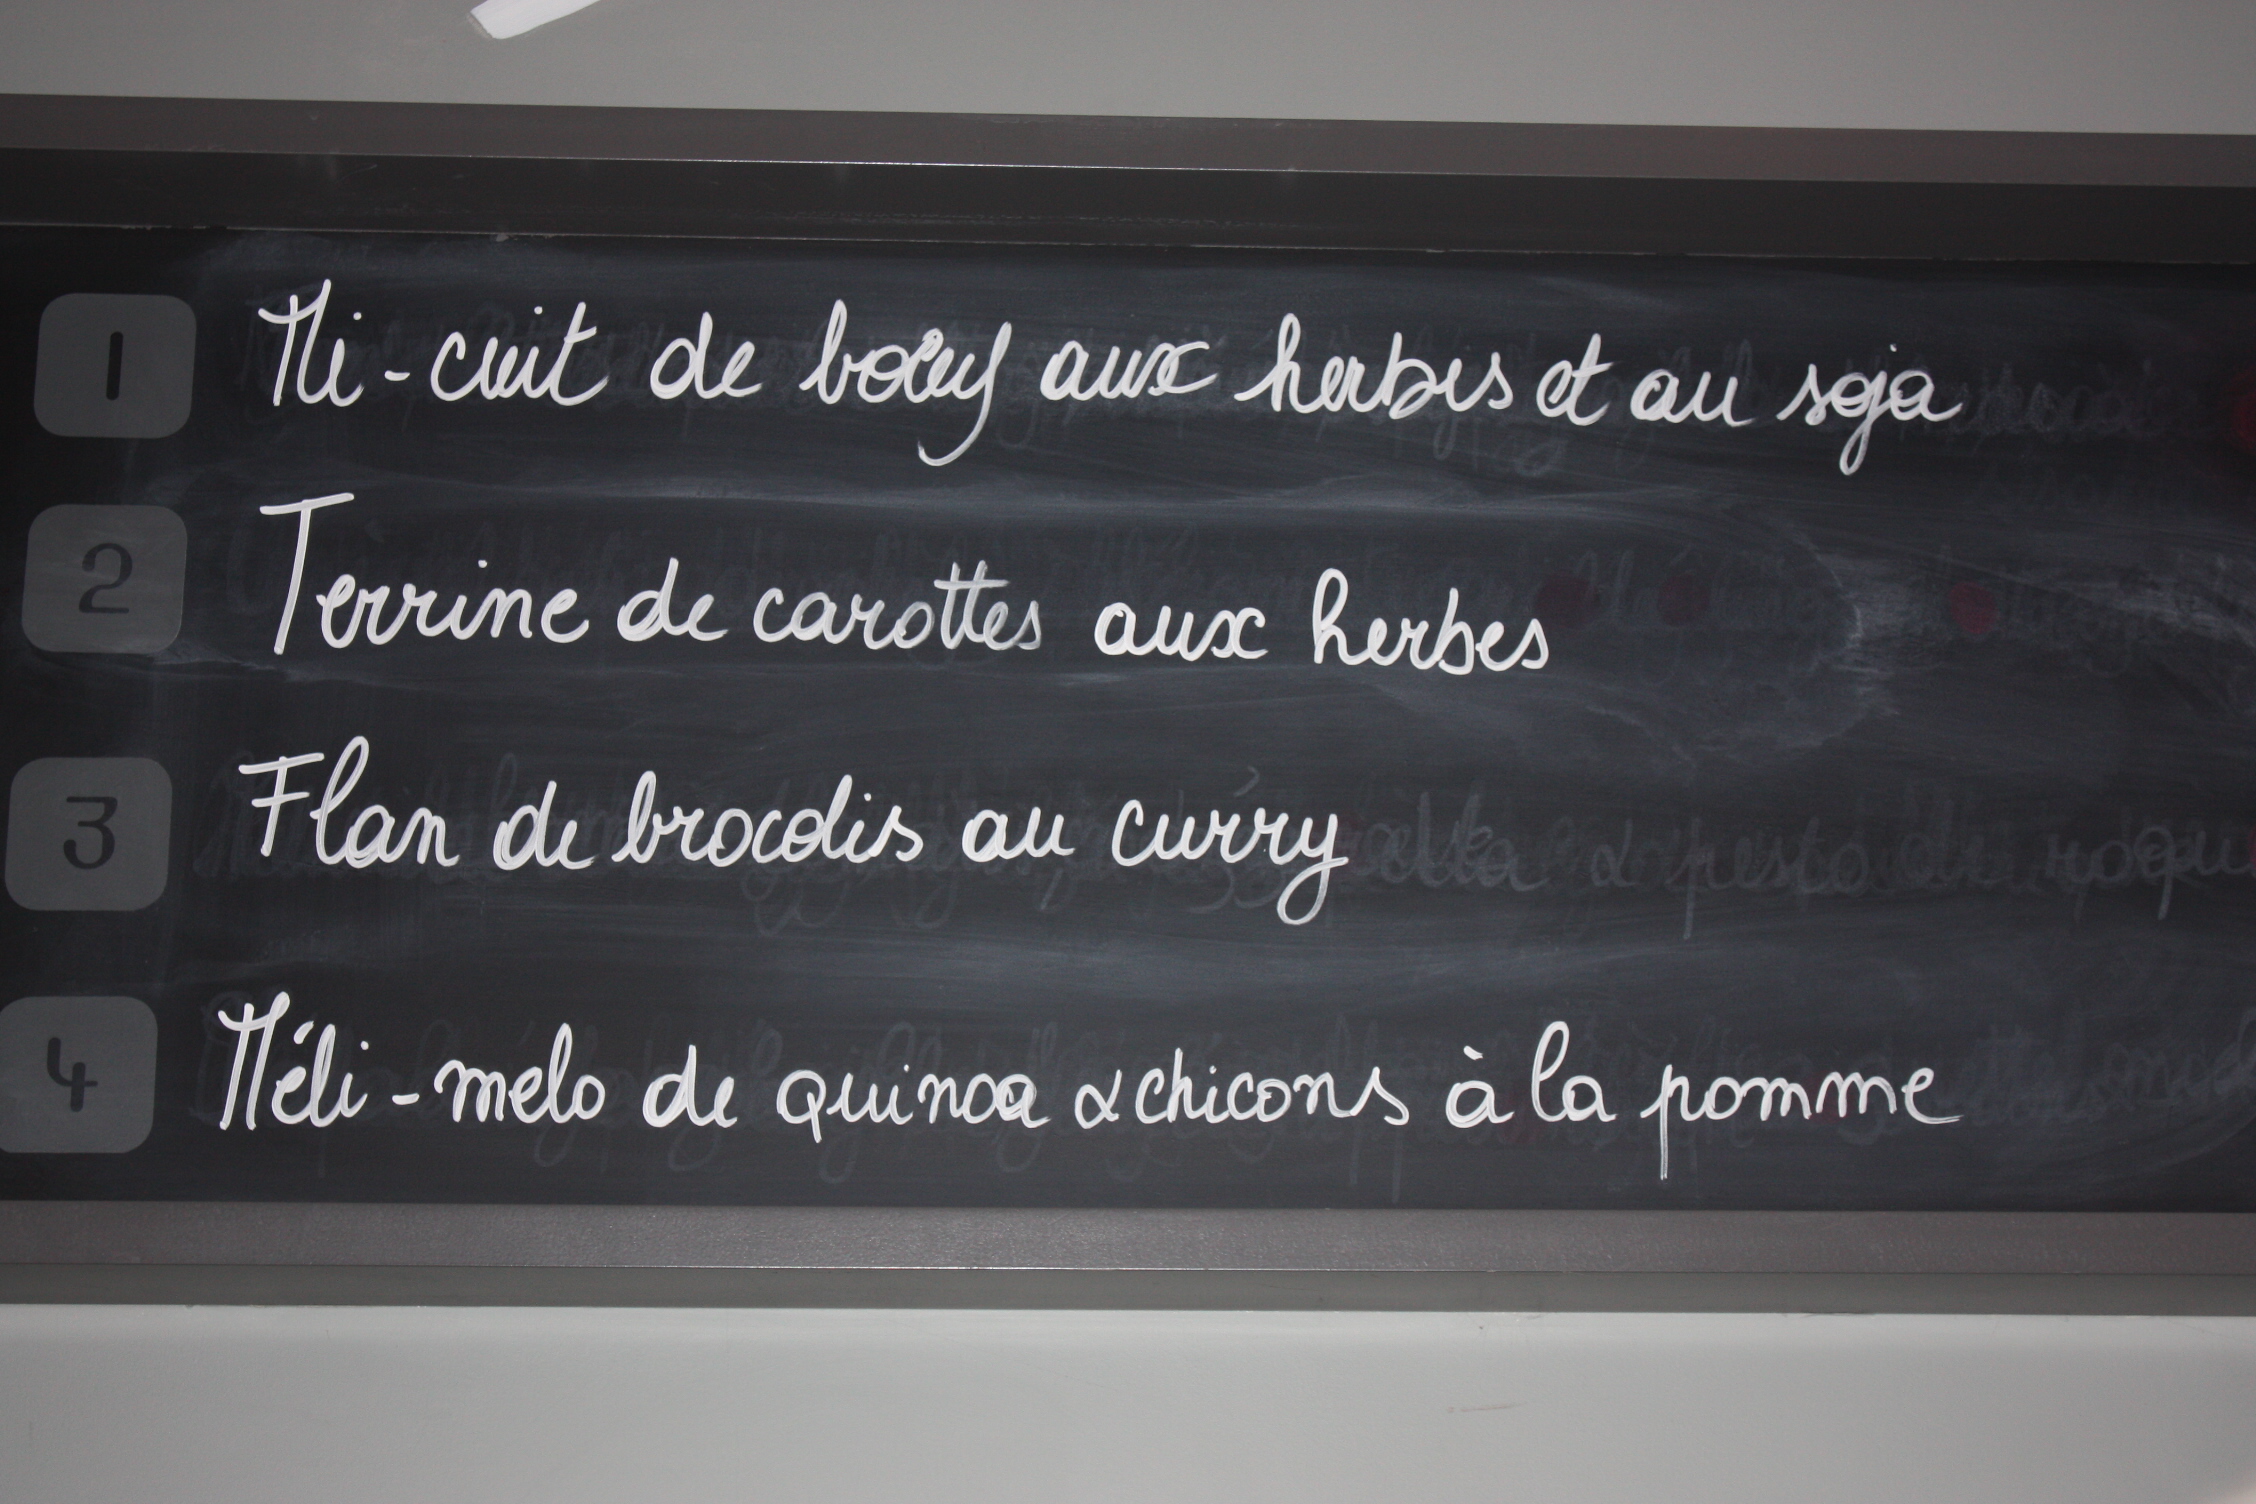 1 Mi-cuit de boeuf aux herbes et au soja
2 Terrine de carottes aux herbes
3 Flan de brocolis au curry
4 Méli-melo de quinoa & chicons à la pomme